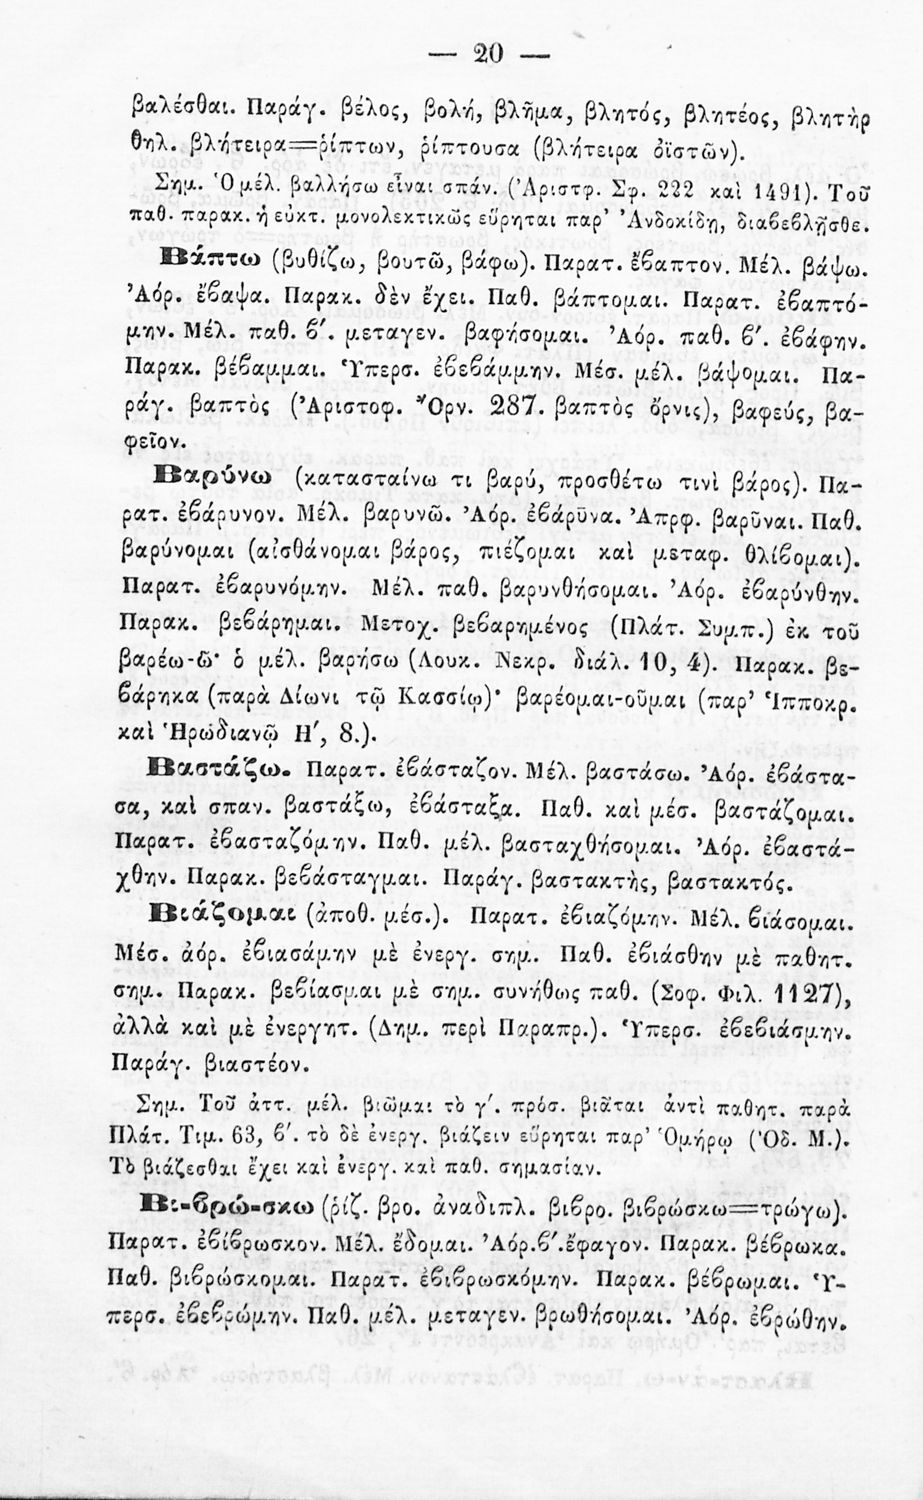 — 20 —
βαλέσθαι. Παράγ. βέλος, βολή, βλῆμα, βλητός, βλητέος, βλητὴρ
θηλ. βλήτειρα=ῥίπτων, ῥίπτουσα (βλήτειρα ὀϊστῶν).
Σημ. Ὁ μέλ. βαλλήσω εἶναι σπάν. (Ἀριστφ. Σφ. 222 καὶ 1491). Τοῦ
παθ. παρακ. ἡ εὐκτ. μονολεκτικῶς εὕρηται παρ’ Ἀνδοκίδῃ, διαϐεϐλῇσθε.
Βάπτω (βυθίζω, βουτῶ, βάφω). Παρατ. ἔϐαπτον. Μέλ. βάψω.
Ἀόρ. ἔϐαψα. Παρακ. δὲν ἔχει. Παθ. βάπτομαι. Παρατ. ἐϐαπτό-
μην. Μέλ. παθ. ϐ′. μεταγεν. βαφήσομαι. Ἀόρ. παθ. ϐ′. ἐϐάφην.
Παρακ. βέϐαμμαι. Ὑπερσ. ἐϐεϐάμμην. Μέσ. μέλ. βάψομαι. Πα-
ράγ. βαπτὸς (Ἀριστοφ. Ὄρν. 287. βαπτὸς ὄρνις), βαφεύς, βα-
φεῖον.
Βαρύνω (κατασταίνω τι βαρύ, προσθέτω τινὶ βάρος). Πα-
ρατ. ἐϐάρυνον. Μέλ. βαρυνῶ. Ἀόρ. ἐϐάρῡνα. Ἀπρφ. βαρῦναι. Παθ.
βαρύνομαι (αἰσθάνομαι βάρος, πιέζομαι καὶ μεταφ. θλίϐομαι).
Παρατ. ἐϐαρυνόμην. Μέλ. παθ. βαρυνθήσομαι. Ἀόρ. ἐϐαρύνθην.
Παρακ. βεϐάρημαι. Μετοχ. βεϐαρημένος (Πλάτ. Συμπ.) ἐκ τοῦ
βαρέω-ῶ· ὁ μέλ. βαρήσω (Λουκ. Νεκρ. διάλ. 10, 4). Παρακ. βε-
ϐάρηκα (παρὰ Δίωνι τῷ Κασσίῳ)· βαρέομαι-οῦμαι (παρ’ Ἱπποκρ.
καὶ Ἡρωδιανῷ Η′, 8.).
Βαστάζω. Παρατ. ἐϐάσταζον. Μέλ. βαστάσω. Ἀόρ. ἐϐάστα-
σα, καὶ σπαν. βαστάξω, ἐϐάσταξα. Παθ. καὶ μέσ. βαστάζομαι.
Παρατ. ἐϐασταζόμην. Παθ. μέλ. βασταχθήσομαι. Ἀόρ. ἐϐαστά-
χθην. Παρακ. βεϐάσταγμαι. Παράγ. βαστακτὴς, βαστακτός.
Βιάζομαι (ἀποθ. μέσ.). Παρατ. ἐϐιαζόμην. Μέλ. ϐιάσομαι.
Μέσ. ἀόρ. ἐϐιασάμην μὲ ἐνεργ. σημ. Παθ. ἐϐιάσθην μὲ παθητ.
σημ. Παρακ. βεϐίασμαι μὲ σημ. συνήθως παθ. (Σοφ. Φιλ. 1127),
ἀλλὰ καὶ μὲ ἐνεργητ. (Δημ. περὶ Παραπρ.). Ὑπερσ. ἐϐεϐιάσμην.
Παράγ. βιαστέον.
Σημ. Τοῦ ἀττ. μέλ. βιῶμαι τὸ γ′. πρόσ. βιᾶται ἀντὶ παθητ. παρὰ
Πλάτ. Τιμ. 63, ϐ′. τὸ δὲ ἐνεργ. βιάζειν εὕρηται παρ’ Ὁμήρῳ (Ὀδ. Μ.).
Τὸ βιάζεσθαι ἔχει καὶ ἐνεργ. καὶ παθ. σημασίαν.
Βι-ϐρώ-σκω (ῥίζ. βρο. ἀναδιπλ. βιϐρο. βιϐρώσκω=τρώγω).
Παρατ. ἐϐίϐρωσκον. Μέλ. ἔδομαι. Ἀόρ.ϐ′.ἔφαγον. Παρακ. βέϐρωκα.
Παθ. βιϐρώσκομαι. Παρατ. ἐϐιϐρωσκόμην. Παρακ. βέϐρωμαι. Ὑ-
περσ. ἐϐεϐρώμην. Παθ. μέλ. μεταγεν. βρωθήσομαι. Ἀόρ. ἐϐρώθην.